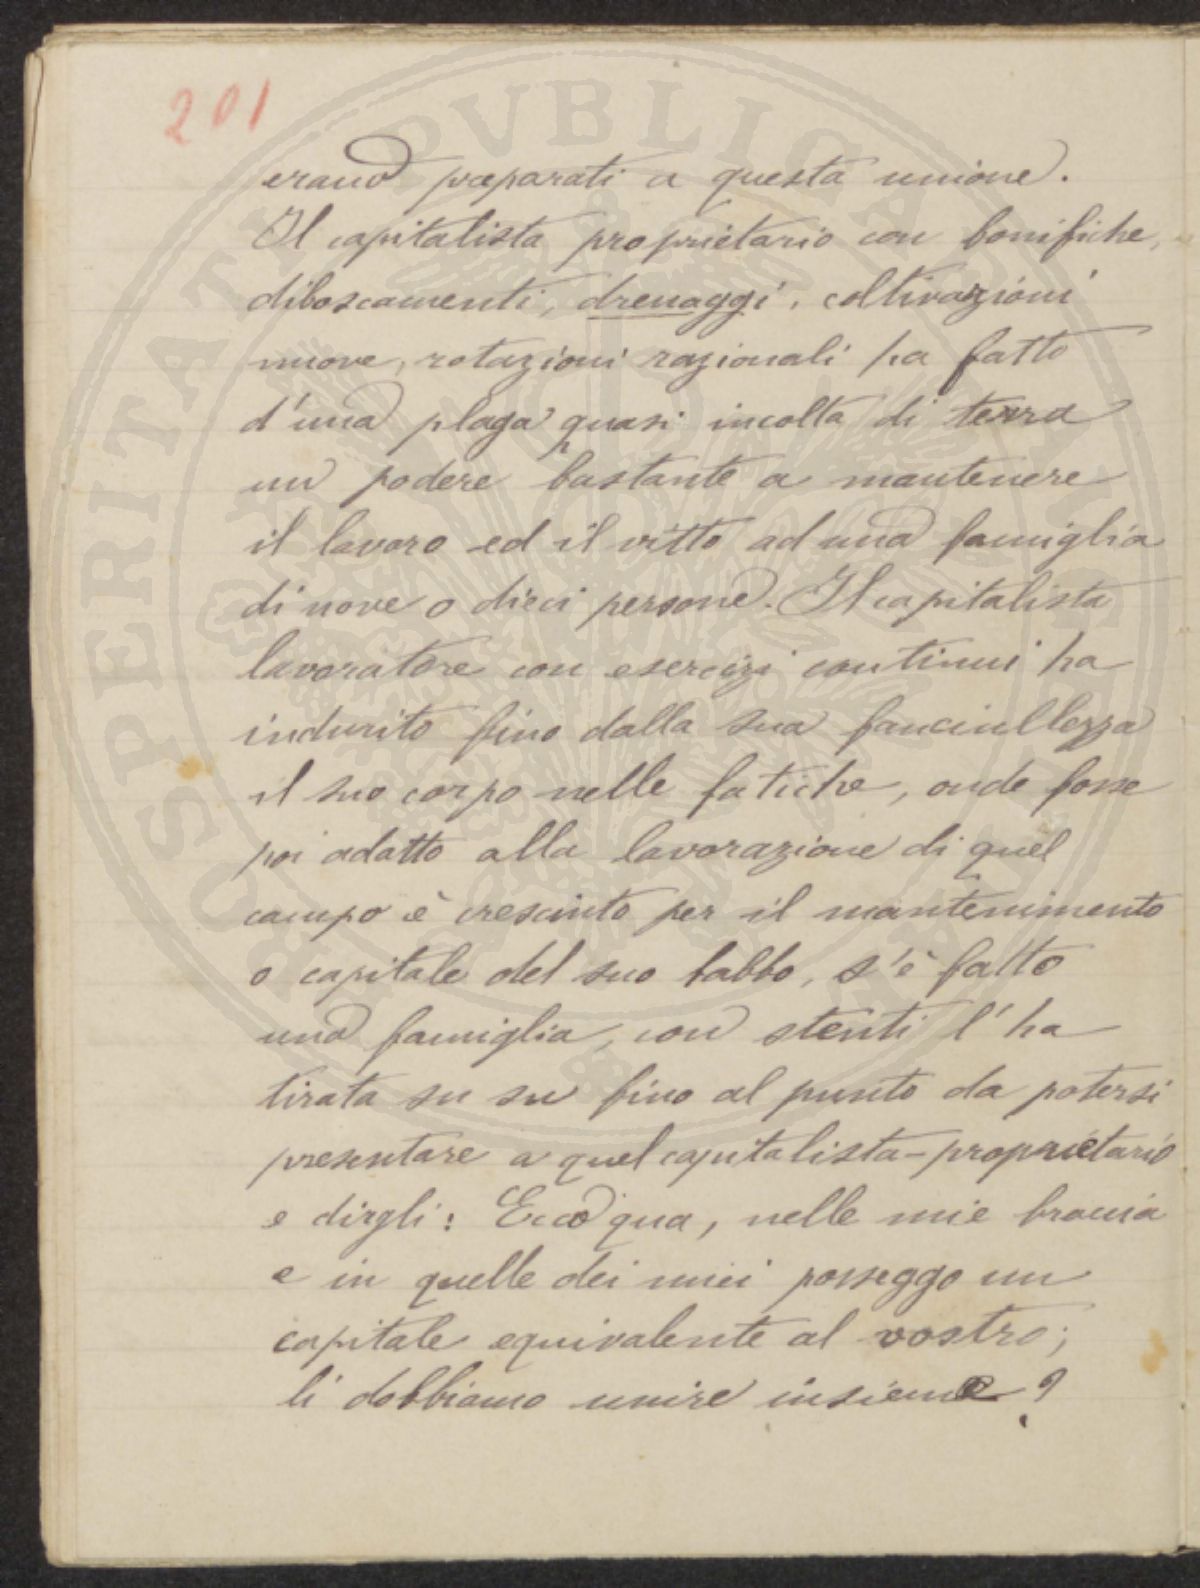 201
erano preparati a questa unione.
Il capitalista proprietario con bonifiche,
diboscamenti, drenaggi, coltivazioni
nuove, rotazioni razionali ha fatto
d'una plaga quasi incolta di terra
un podere bastante a mantenere
il lavoro ed il vitto ad una famiglia
di nove o dieci persone. Il capitalista
lavoratore con esercizi continui ha
indurito fino dalla sua fanciullezza
il suo corpo nelle fatiche, onde fosse
poi adatto alla lavorazione di quel
campo è cresciuto per il mantenimento
o capitale del suo babbo, s'è fatto
una famiglia, con stenti l'ha
tirata su su fino al punto da potersi
presentare a quel capitalista-proprietario
e dirgli: Ecco qua, nelle mie braccia
e in quelle dei miei posseggo un
capitale equivalente al vostro;
li dobbiamo unire insieme?